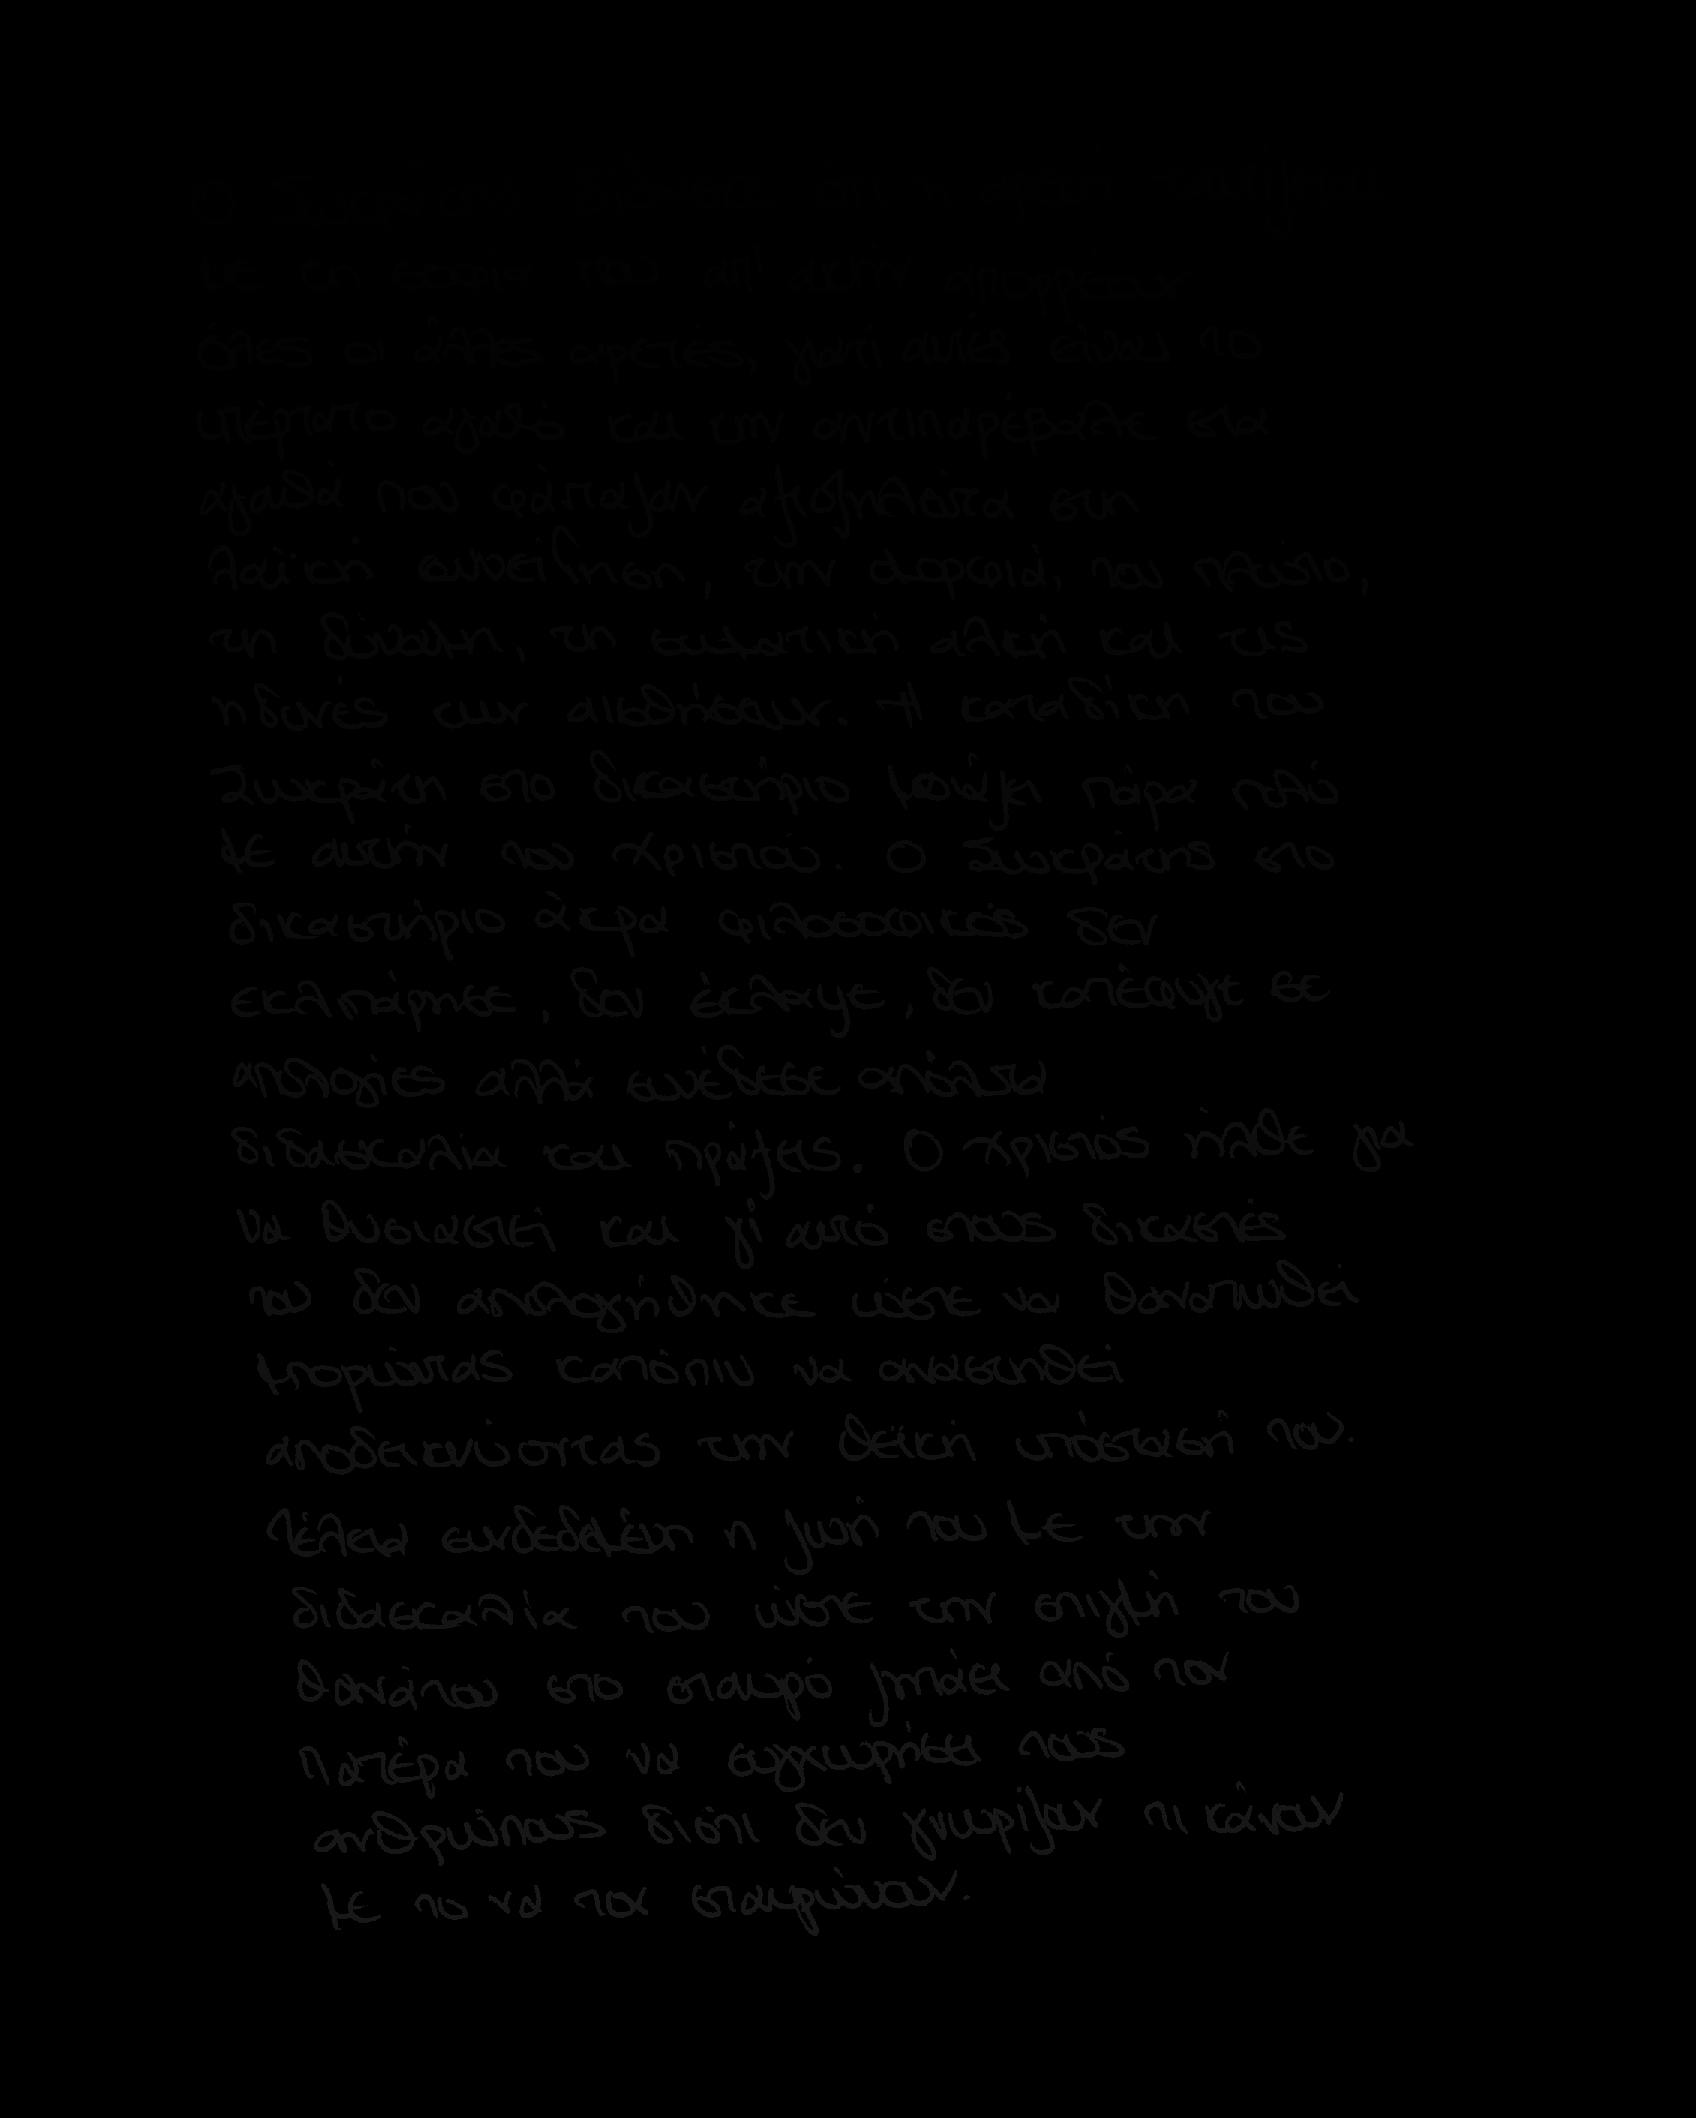 Ο Σωκράτης δίδασκε ότι η αρετή ταυτίζεται
με τη σοφία που απ' αυτήν απορρέουν
όλες οι άλλες αρετές, γιατί αυτές είναι το
υπέρτατο αγαθό και την αντιπαρέβαλε στα
αγαθά που φάνταζαν αξιοζήλευτα στη
λαϊκή συνείδηση, την ομορφιά, του πλούτο,
τη δύναμη, τη σωματική αλκή και τις
ηδονές των αισθήσεων. Η καταδίκη του
Σωκράτη στο δικαστήριο μοιάζει πάρα πολύ
με αυτήν του Χριστού. Ο Σωκράτης στο
δικαστήριο άκρα φιλοσοφικός δεν
εκλιπάρησε, δεν έκλαψε, δεν κατέφυγε σε
απολογίες αλλά συνέδεσε απόλυτα
διδασκαλία και πράξεις. Ο Χριστός ήλθε για
να θυσιαστεί και γι' αυτό στους δικαστές
του δεν απολογήθηκε ώστε να θανατωθεί
μπορώντας κατόπιν να αναστηθεί
αποδεικνύοντας την θεϊκή υπόστασή του.
Τέλεια συνδεδεμένη η ζωή του με την
διδασκαλία του ώστε την στιγμή του
θανάτου στο σταυρό ζητάει από τον
Πατέρα του να συγχωρήσει τους
ανθρώπους διότι δεν γνωρίζουν τι κάνουν
με το να τον σταυρώνουν.